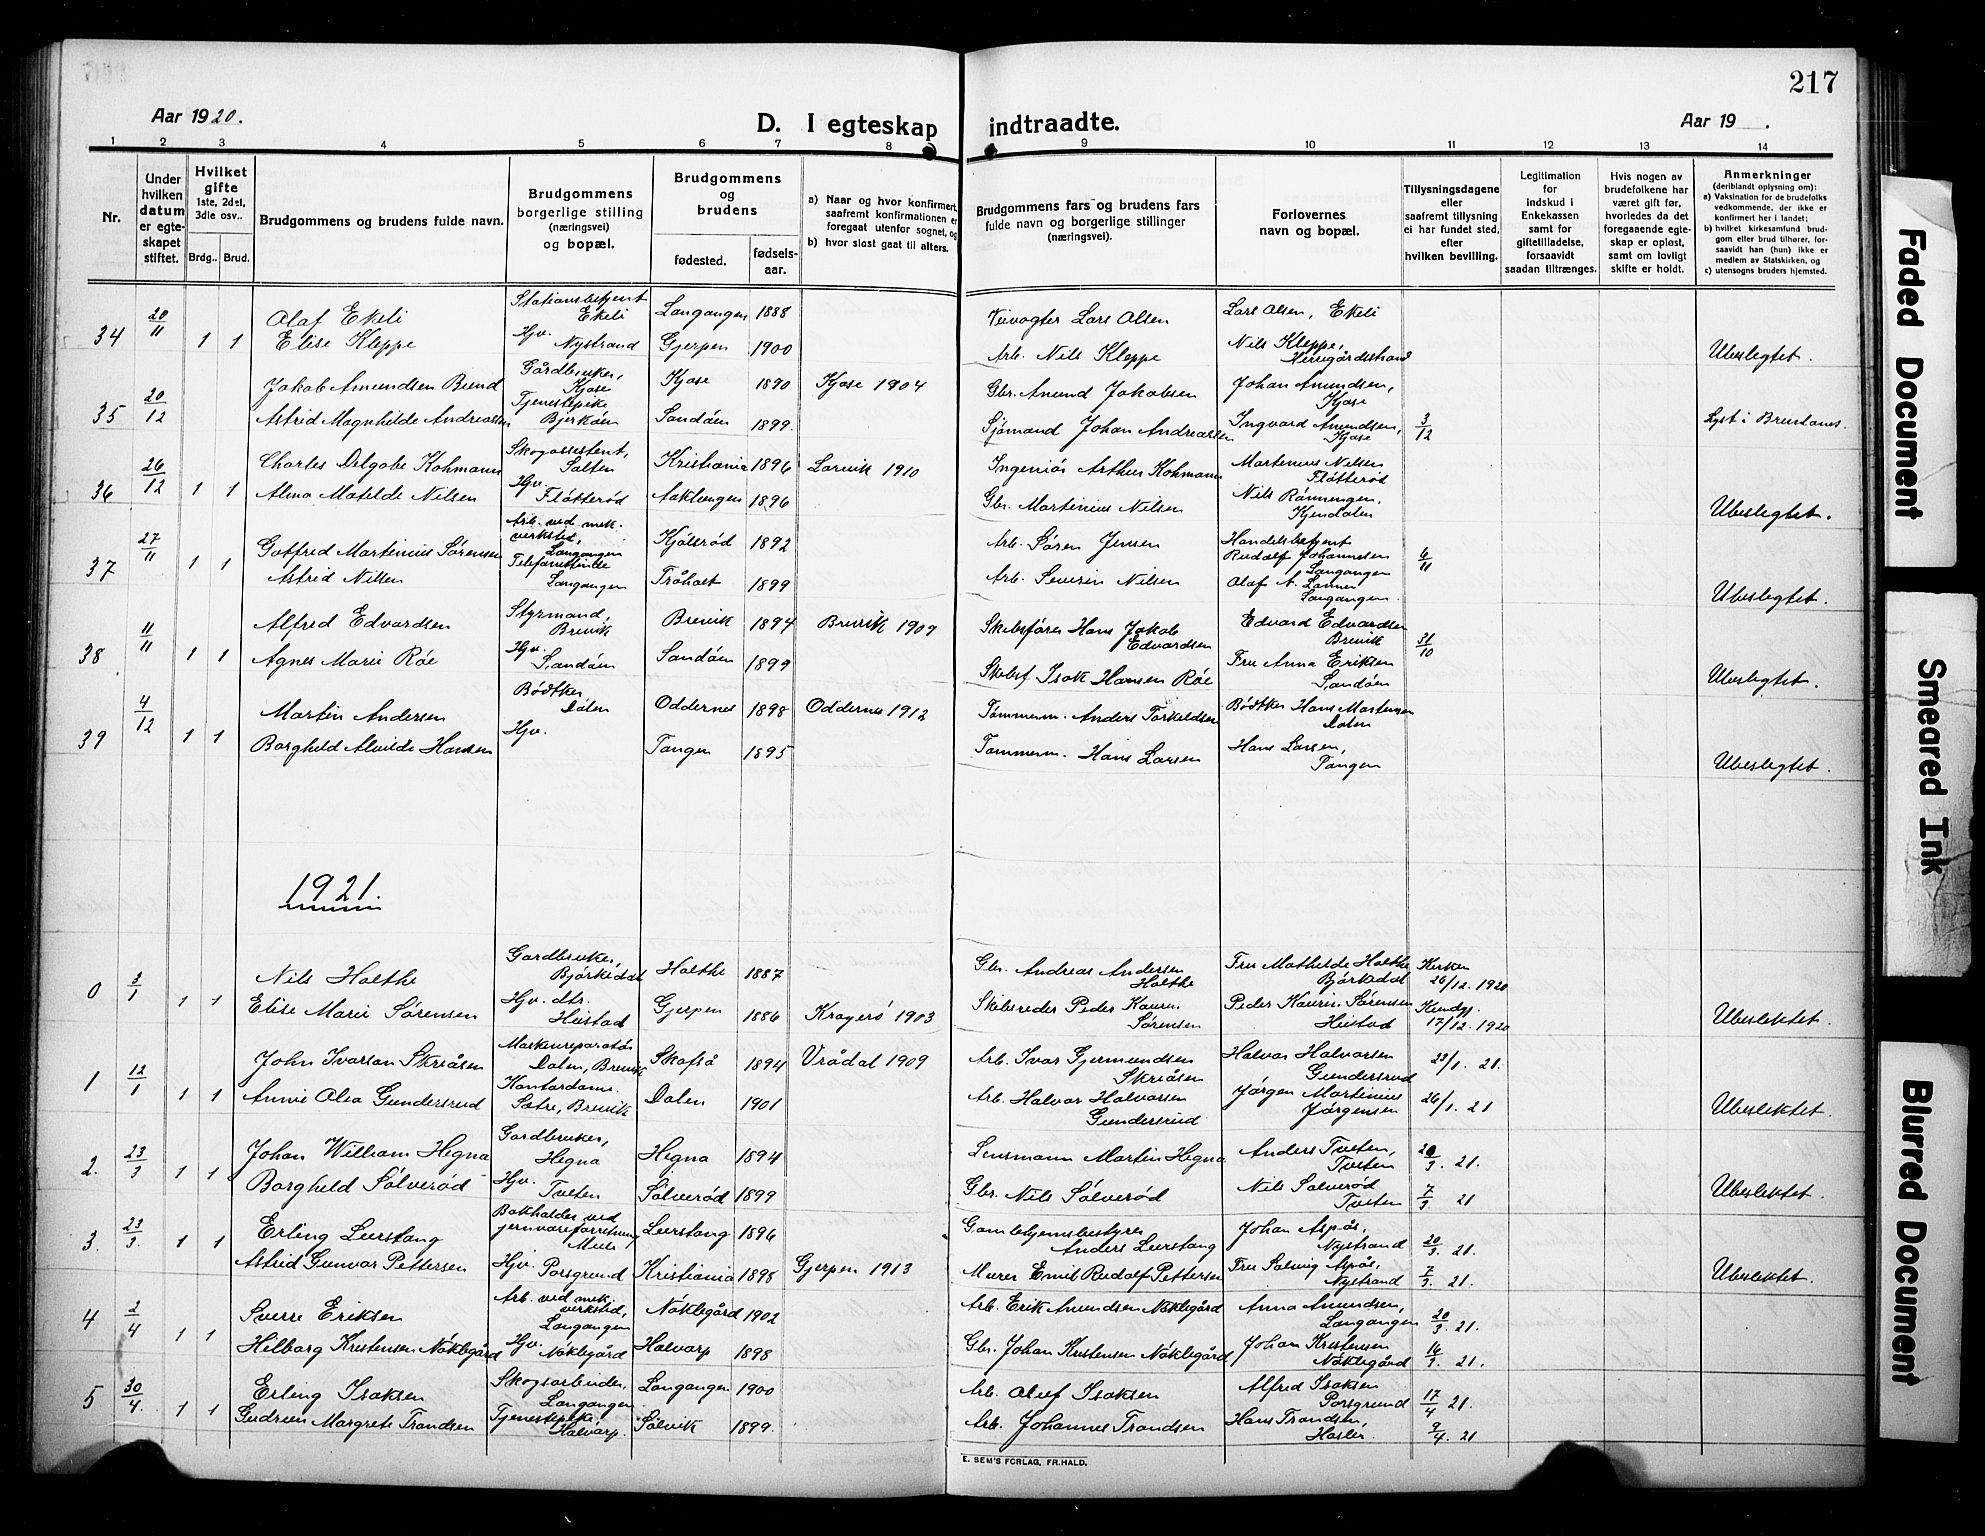 217
Aar 1920.
D. I egteskap indtraadte.
Aar 19 .
1 2 3 4 5 6 7 8 9 10 11 12 13 14
Nr.
Under hvilken datum er egteskapet stiftet.
Hvilket gifte 1ste, 2det, 3die osv..
Brdg.. Brud.
Brudgommens og brudens fulde navn.
Brudgommens borgerlige stilling (næringsvei) og bopæl.
Brudgommens og brudens
fødested. fødselsaar.
a) Naar og hvor konfirmert, saafremt konfirmationen er foregaat utenfor sognet, og
b) hvor sidst gaat til alters.
Brudgommens fars og brudens fars fulde navn og borgerlige stillinger (næringsvei).
Forlovernes navn og bopæl.
Tillysningsdagene eller saafremt tillysning ei har fundet sted, efter hvilken bevilling.
Legitimation for indskud i Enkekassen samt for giftetilladelse, forsaavidt saadan tiltrænges.
Hvis nogen av brudefolkene har været gift før, hvorledes da det foregaaende egteskap er opløst, samt om lovligt skifte er holdt.
Anmerkninger (deriblandt oplysning om):
a) Vaksination for de brudefolks vedkommende, der ikke er konfirmert her i landet;
b) hvilket kirkesamfund brudgom eller brud tilhører, forsaavidt han (hun) ikke er medlem av Statskirken, og
c) utensogns bruders hjemsted.
34 20/11 1 1 Olaf Ekeli Stationsbetjent Ekeli Langangen 1888 Veivogter Lars Olsen Lars Olsen, Ekeli
Elise Kleppe Hjv. Nystrand Gjerpen 1900 Arb. Nils Kleppe Nils Kleppe, Herregårdsstrand Ubeslegtet.
35 20/12 Jakob Amundsen Bund Gårdbruker, Kjose Kjose 1890 Kjose 1904 Gbr. Amund Jakobsen Johan Amundsen, Kjose
Astrid Magnhilde Andreassen Tjenestepike Bjerkøen Sandøen 1899. Sjømand Johan Andreassen Ingvard Amundsen, Kjose 3/12 Lyst i Brunlanes.
36 26/12 1 1 Charles Delgobe Kohmann Skogassistent, Salten Kristiania 1896 Larvik 1910 Ingeniør Arthur Kohmann Martinius Nilsen Fløtterød
Alma Matilde Nilsen Hjv. Fløtterød Aaklungen 1896 Gbr. Martinius Nilsen Nils Rønningen, Kjendalen Ubeslegtet.
37 27/11 1 1 Gotfred Martinius Sørensen Arb. ved mek. verksted, Langangen Kjølsrød 1892 Arb. Søren Jensen Handelsbetjent Rudolf Johannesen Langangen 6/11
Astrid Nilsen Telefonistinde Langangen Tråholt 1899 Arb. Severin Nilsen Olaf A. Lanner Langangen Ubeslegtet.
38 11/11 1 1 Alfred Edvardsen Styrmand, Brevik Brevik 1894 Brevik 1909 Skibsfører Hans Jakob Edvardsen Edvard Edvardsen Brevik 31/10
Agnes Marie Røe Hjv. Sandøen Sandøen 1899 Skibsf. Isak Hansen Røe Fru Anna Eriksen Sandøen Ubeslegtet.
39 4/12 1 1 Martin Andersen Bødtker, Dalen Oddernes 1898 Oddernes 1912 Tømmerm. Anders Torkeldsen Bødtker Hans Martinsen Dalen
Borghild Alvilde Hansen Hjv. Tangen 1895 Tømmerm. Hans Larsen Hans Larsen, Tangen Ubeslegtet.
1921.
0 3/1 1 1 Nils Holthe Gardbruker, Bjørkedal Holthe 1887 Gbr. Andreas Andersen Holthe Fru Mathilde Holthe Bjørkedal Kirken 26/12. 1920
Elise Marie Sørensen Hjv. dtr. Heistad Gjerpen 1886 Kragerø 1903 Skibsreder Peder Kaurin Sørensen Peder Kaurin Sørensen Heistad Kundgj. 17/12. 1920 Ubeslektet.
1 12/1 1 1 John Ivarson Skriåsen Maskinreparatør Dalen, Brevik Skafså 1894 Vrådal 1909 Arb. Ivar Gjermundsen Skriåsen Halvor Halvorsen Gundersrud 23/1. 21.
Annie Olea Gundersrud Kontordame. Sætre, Brevik Dalen 1901 Arb. Halvor Halvorsen Gundersrud Jørgen Martinius Jørgensen 26/1. 21 Ubeslektet.
2. 23/3 1 1 Johan William Hegna Gardbruker, Hegna Hegna 1894 Lensmann Martin Hegna Anders Tveten, Tveten 20/3. 21.
Borghild Sølverød Hjv. Tveten Sølverød 1899 Gbr. Nils Sølverød Nils Sølverød Tveten 7/3 21 Ubeslektet.
3. 23/3. 1 1 Erling Leerstang Bokholder ved jernvareforretning, Mule Leerstang 1896 Gamlehjemsbestyrer Anders Leerstang Johan Aspås, Nystrand 20/3. 21.
Astrid Gunvor Pettersen Hjv. Porsgrund Kristiania 1898 Gjerpen 1913 Murer Emil Rudolf Pettersen Fru Solveig Aspås, Nystrand 7/3. 21. Ubeslektet.
4 2/4 1 1 Sverre Eriksen Arb. ved mek. verksted, Langangen Nøklegård 1902 Arb. Erik Amundsen Nøklegård Anna Amundsen, Langangen 20/3. 21.
Hilborg Kristensen Nøklegård Hjv. Nøklegård Halvarp 1898 Gbr. Johan Kristensen Nøklegård Johan Kristensen Nøklegård 16/3. 21.
5 30/4. 1 1 Erling Isaksen Skogsarbeider, Langangen Langangen 1900 Arb. Oluf Isaksen Alfred Isaksen Porsgrund 17/4 21.
Gudrun Margrete Trondsen Tjenestepike, Halvarp. Sølvik 1899. Arb. Johannes Trondsen Hans Trondsen, Hasler. 9/4. 21
E. SEM'S FORLAG, FR.HALD.
Faded Document
Smeared Ink
Blurred Document